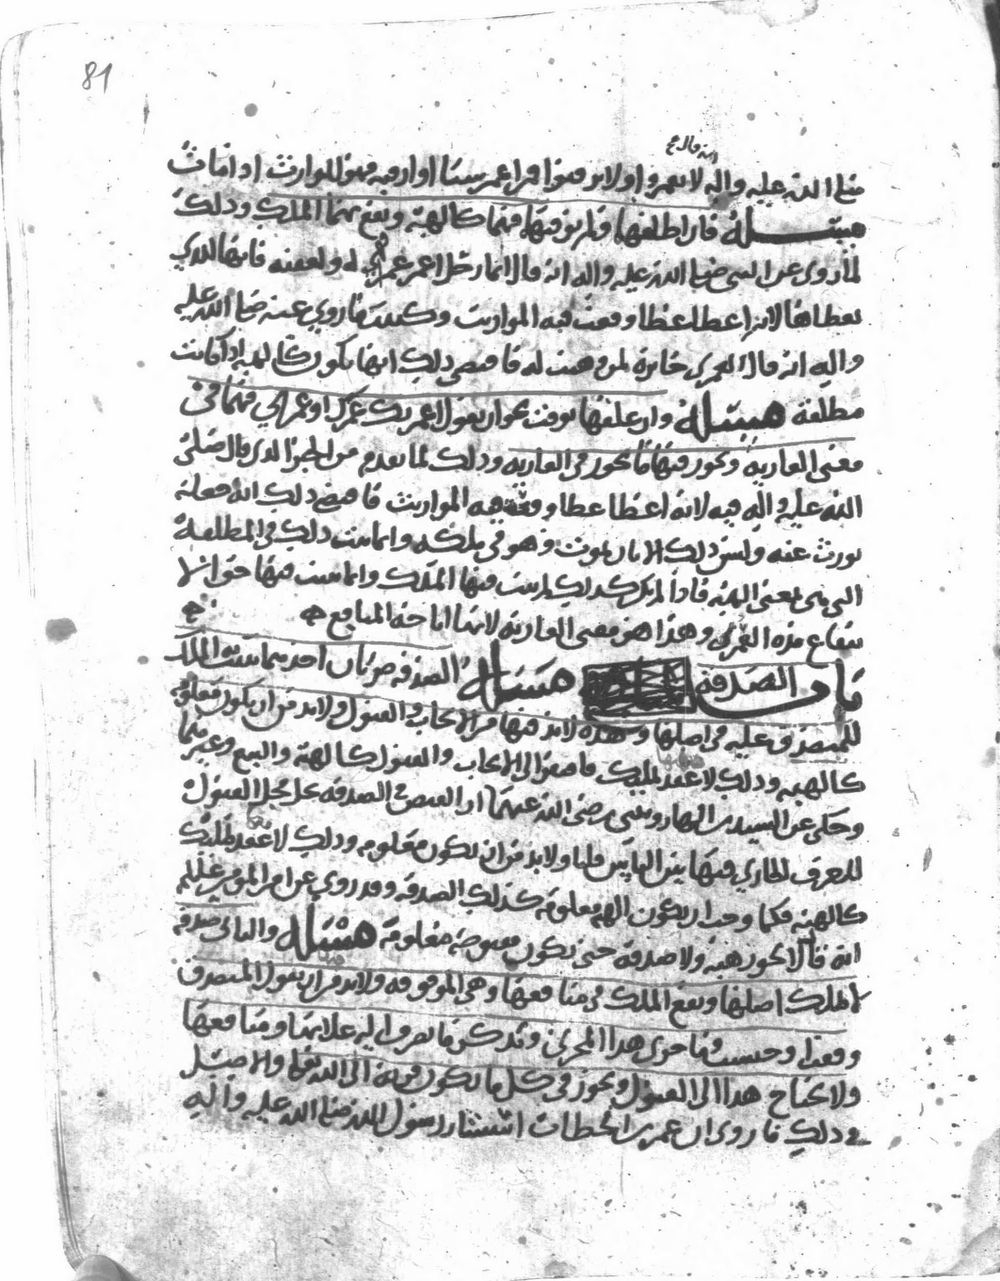 81
انه قال ع
صلى الله عليه واله لا تعمروا ولا ترقبوا فمن اعمر شيئا او ارقبه فهو للوارث اذا مات
مسئلة فان اطلقها ولم يوقتها فهما كالهبة ويقع بهما الملك وذلك
لما روي عن النبي صلى الله عليه واله انه قال ايما رجل اعمر عمرى له ولعقبه فانها للذي
يعطاها لانه اعطا عطا وقعت فيه المواريث وكذلك ما روي عنه صلى الله عليه
واله انه قال العمرى جائزة لمن وهبت له فاقتضى ذلك انها تكون كالهبة اذا كانت
مطلقة مسئلة وان علقها بوقت نحو ان يقول اعمرتك عمرك او عمري فهما في
معنى العارية ويجوز فيها ما يجوز في العارية وذلك لما تقدم من الخبر الذي قال صلى
الله عليه واله فيه لانه اعطا عطا وقعت فيه المواريث فاقتضى ذلك انه جعله
يورث عنه وليس ذلك الا بان يموت وهو في ملكه وانما يثبت ذلك في المطلقة
التي هي بمعنى الهبة فاذا لم تكن كذلك لم يثبت فيها الملك وانما يثبت فيها جواز الا
نتفاع مدة العمرى وهذا هو معنى العارية لانها اباحة المنافع
باب الصدقة مسئلة الصدقة ضربان احدهما يثبت الملك
للمتصدق عليه في اصلها وهذه لا بد فيها من الايجاب والقبول ولا بد من ان يكون معلومة
كالهبة وذلك لانه عقد تمليك فافتقر الى الايجاب والقبول كالهبة والبيع وغيرهما
وحكي عن السيدين الهارونيين رضي الله عنهما ان القبض في الصدقة يحل محل القبول
للعرف الجاري فيها بين المسلمين ولا بد من ان تكون معلومة وذلك لانه عقد تمليك
كالهبة فكما وجب ان يكون الهبة معلومة كذلك الصدقة وقد روي عن امير المؤمنين عليلم
انه قال لا تجوز هبة ولا صدقة حتى تكون مقبوضة معلومة مسئلة والثاني صدقة
لا تملك اصلها ويقع الملك في منافعها وهي الموقوفة ولا بد من ان يقول المتصدق
وقفت او حبست وما جرى هذا المجرى وقد ذكر ما تصرف اليه غلاتها ومنافعها
ولا يحتاج هذا الى القبول ويجوز في كل ما يكون قربة الى الله تعالى والاصل
في ذلك ما روي ان عمر بن الخطاب استشار رسول الله صلى الله عليه واله